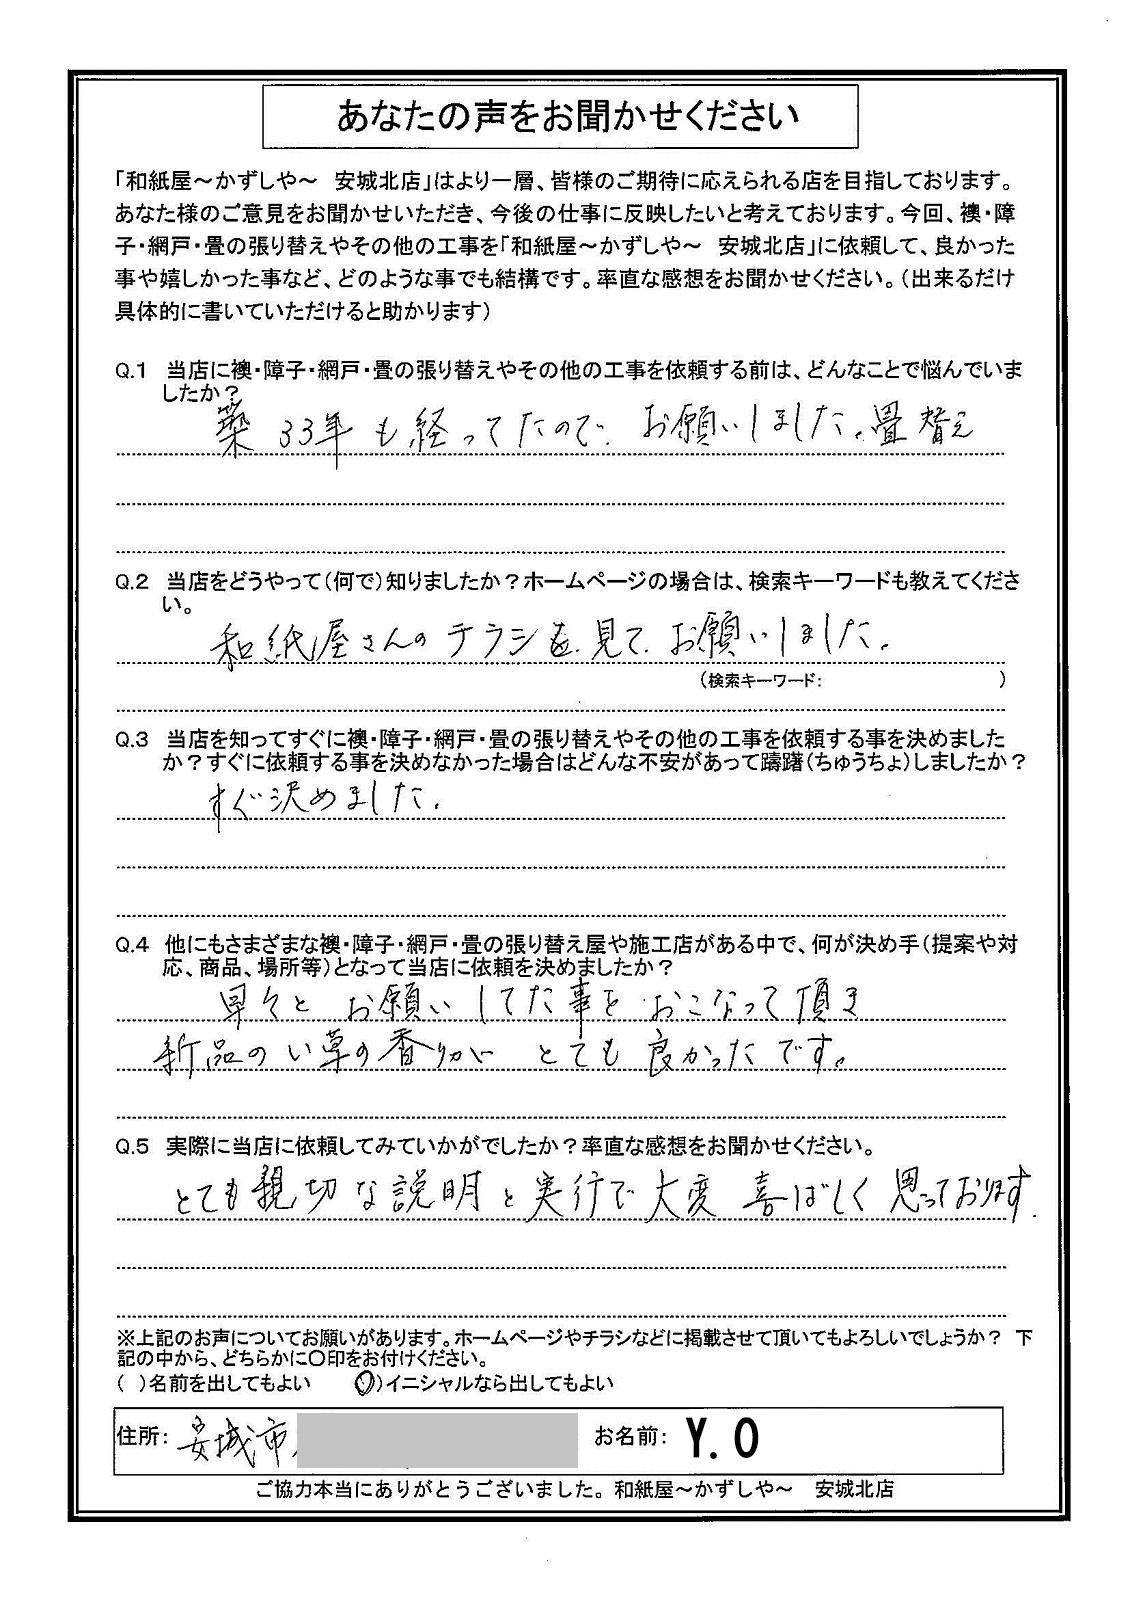 あなたの声をお聞かせください
「和紙屋～かずしや～　安城北店」はより一層、皆様のご期待に応えられる店を目指しております。
あなた様のご意見をお聞かせいただき、今後の仕事に反映したいと考えております。今回、襖・障
子・網戸・畳の張り替えやその他の工事を「和紙屋～かずしや～　安城北店」に依頼して、良かった
事や嬉しかった事など、どのような事でも結構です。率直な感想をお聞かせください。（出来るだけ
具体的に書いていただけると助かります）
Q.1　当店に襖・障子・網戸・畳の張り替えやその他の工事を依頼する前は、どんなことで悩んでいま
したか？
築33年も経ってたので、お願いしました。畳替え
Q.2　当店をどうやって（何で）知りましたか？ホームページの場合は、検索キーワードも教えてくださ
い。
和紙屋さんのチラシを見て、お願いしました。
（検索キーワード：　　　　　　　　　　）
Q.3　当店を知ってすぐに襖・障子・網戸・畳の張り替えやその他の工事を依頼する事を決めました
か？すぐに依頼する事を決めなかった場合はどんな不安があって躊躇（ちゅうちょ）しましたか？
すぐ決めました。
Q.4　他にもさまざまな襖・障子・網戸・畳の張り替え屋や施工店がある中で、何が決め手（提案や対
応、商品、場所等）となって当店に依頼を決めましたか？
早々とお願いしてた事をおこなって頂き
新品のい草の香りがいとても良かったです。
Q.5　実際に当店に依頼してみていかがでしたか？率直な感想をお聞かせください。
とても親切な説明と実行で大変喜ばしく思っております.
※上記のお声についてお願いがあります。ホームページやチラシなどに掲載させて頂いてもよろしいでしょうか？　下
記の中から、どちらかに〇印をお付けください。
（　）名前を出してもよい　　（〇）イニシャルなら出してもよい
住所：安城市　お名前：Y.O
ご協力本当にありがとうございました。和紙屋～かずしや～　安城北店